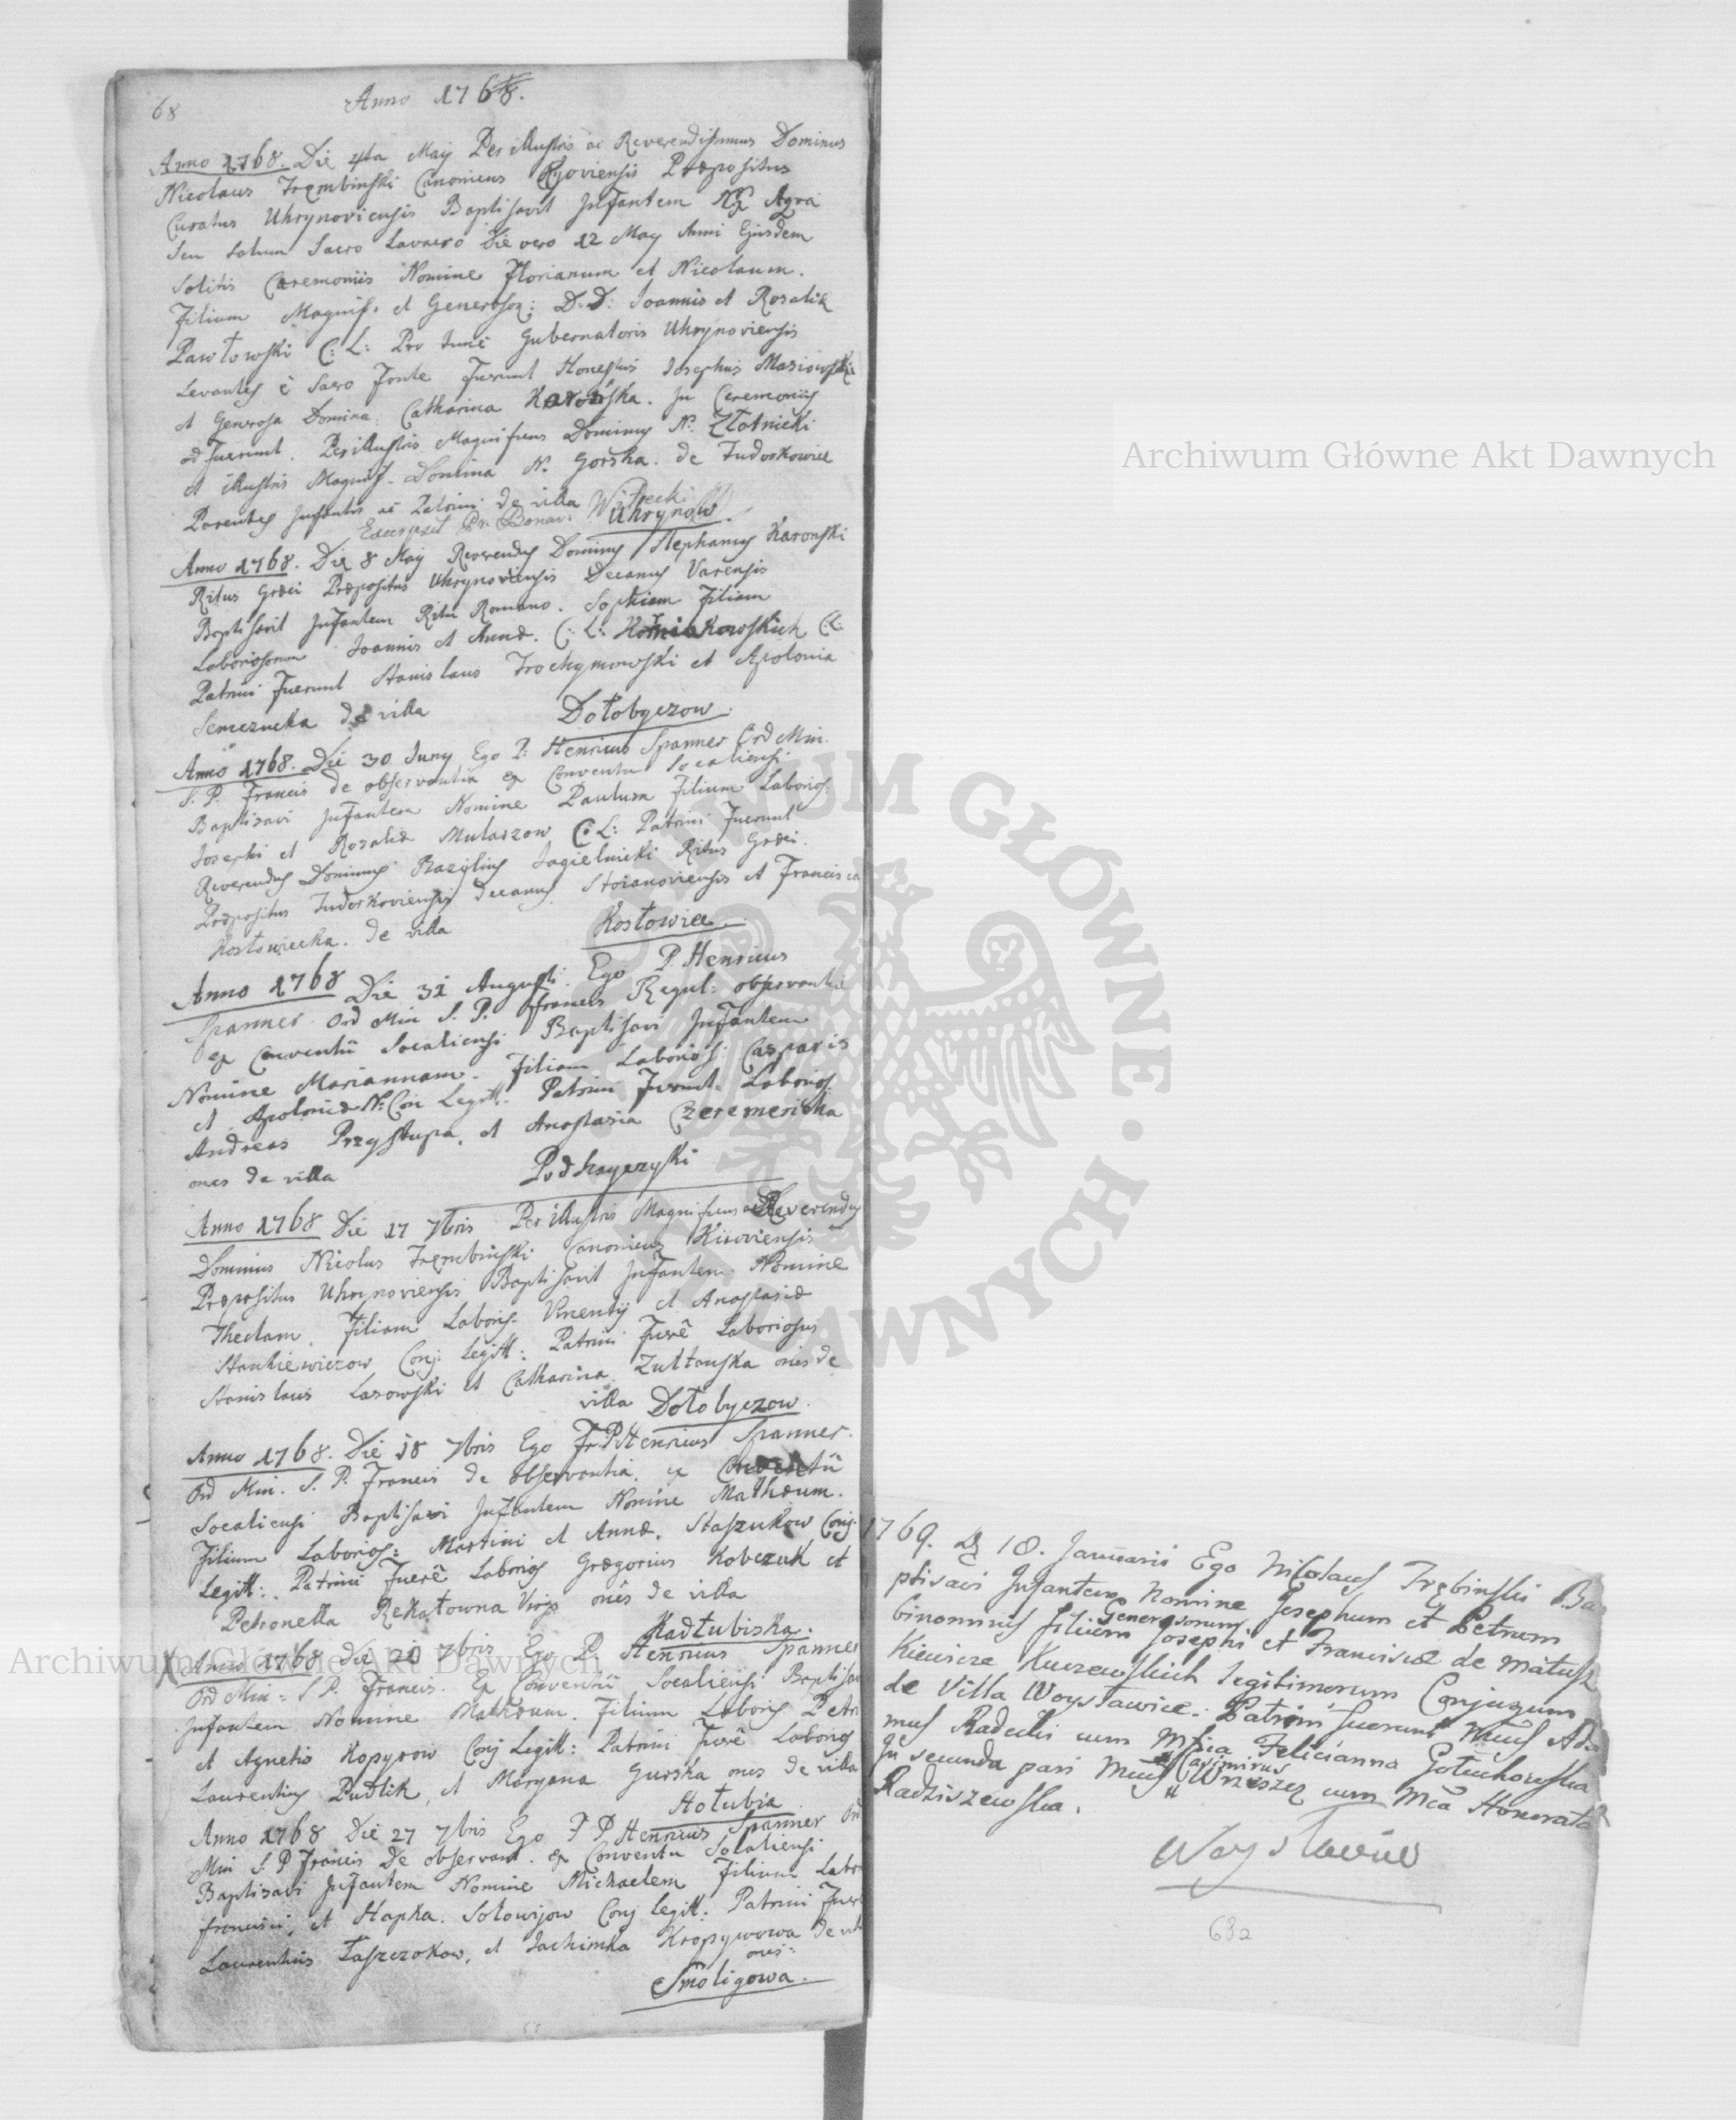 68
Anno 1768.
Anno 1768. Die 4ta Maij Per illustris ac Reverendissimus Dominus
Nicolaus Trembinski Canonicus Kijoviensis Præpositus
Curatus Uhrynoviensis Baptisavit Infantem Ex Aqva
seu solum Sacro Lavacro Die vero 12 May Anni Ejusdem
solitis Caeremoniis Nomine Florianum et Nicolaum.
Filium Magnif. et Generosor: D.D: Joannis et Rosaliæ
Pawłowski C: L: Pro tunc Gubernatoris Uhrynoviensis
Levantes è Sacro Fonte Fuerunt Honestus Josephus Masiowski
et Generosa Domina Catharina Karońska. In Ceremoniis
adfuerunt. Perillustris Magnificus Dominus N. Złotnicki
et illustris Magnif. Domina N. Gorska. de Tudorkowice
Parentes Infantis ac Patrini de villa Uhrynow.
Excerpsit Pr. Bonav: Witecki
Anno 1768. Die 8 Maij Reverendus Dominus Stephanus Karonski
Ritus Græci Præpositus Uhrynoviensis Decanus Varensis
Baptisavit Infantem Ritu Romano. Sophiam Filiam
Laboriosorum Joannis et Annæ. C: L:
Patrini Fuerunt Stanislaus Trochymowski et Apolonia
Semczucka de villa Dołobyczow.
Anno 1768. Die 30 Juny Ego P: Henricus Spanner Ord Min.
S. P. Francis de observantia ex Conventu Socaliensi
Baptisavi Infantem Nomine Paulum Filium Laborios:
Josephi et Rosaliæ Mularzow C: L: Patrini Fuerunt
Reverendus Dominus Bazylius Jagielnicki Ritus Græci.
Præpositus Tudorkoviensis Decanus Stoianoviensis et Francisca
Kosłowiecka. de villa Kosłowice.
Anno 1768 Die 31 Augusti. Ego P Henricus
Spanner Ord Min S. P. Francis Regul: observantiæ
ex Conventû Socaliensi Baptisavi Infantem
Nomine Mariannam. Filiam Laborios: Casparis
et Apoloniæ N. Con Legitt: Patrini Fuerunt. Laborios.
Andreas Przystupa, et Anastasia Czeremericha
ones de villa Podhayczyki
Anno 1768 Die 17 7bris Per illustris Magnificus ac Reverendus
Dominus Nicolus Trembinski Canonicus Kiioviensis
Præpositus Uhrynoviensis Baptisavit Infantem Nomine
Theclam. Filiam Laboris. Vincentij et Anastasiæ
Stankiewiczow Conj: Legitt: Patrini Fuerê Laboriosus
Stanislaus Lasowski et Catharina Zułtańska ones de
villa Dołobyczow.
Anno 1768. Die 18 7bris Ego Fr. P. Henricus Spanner.
Ord Min. S. P. Francis de observantia. ex Conventû
Socaliensi Baptisavi Infantem Nomine Mathæum.
Filium Laborios: Martini et Annæ. Staszukow Conj.
Legitt:. Patrini Fuerê Laborios Grægorius Kobczuk et
Petronella Rekątowna Virgo onês de villa
Kadłubiska.
Anno 1768 Die 20 7bris Ego P. Henricus Spanner
Ord Min: S. P. Francis. Ex Conventû Socaliensi Baptisavi
Infantem Nomine Mathæum. Filium Laboris Petri
et Agnetis Kopyrow Conj Legitt: Patrini Fuerê Laborios
Laurentius Pudlik, et Maryana Gurska ones de villa
Hołubia
Anno 1768 Die 27 7bris Ego F P Henricus Spanner Ord
Min S. P Francis De observant. ex Conventu Socaliensi
Baptisavi Infantem Nomine Michaelem Filium Labor
Francisci, et Hapka. Sołowijow Conj Legitt: Patrini Fuer
Laurentius Łaszczokow, et Jachimka Kropywowa de vil
ones:
Smoligowa.
1769. D 18. Januarii Ego Nicolaus Trębinski Ba
ptisavi Infantem Nomine Josephum et Petrum
binominus filium Generosorum Josephi et Franciscæ de Matusz
kiewicze Kuczewskich Legitimorum Conjugum
de Villa Woysławice. Patrini fuerunt Mcus Ada
mus Radecki cum Mfica Felicianna Gołuchowska
In secunda pari Mcus Casimirus Wrzeszcz cum Mca Honorata
Radziszewska.
Woysławice
68a
Archiwum Główne Akt Dawnych
Archiwum Główne Akt Dawnych
ARCHIWUM GŁÓWNE • AKT DAWNYCH •